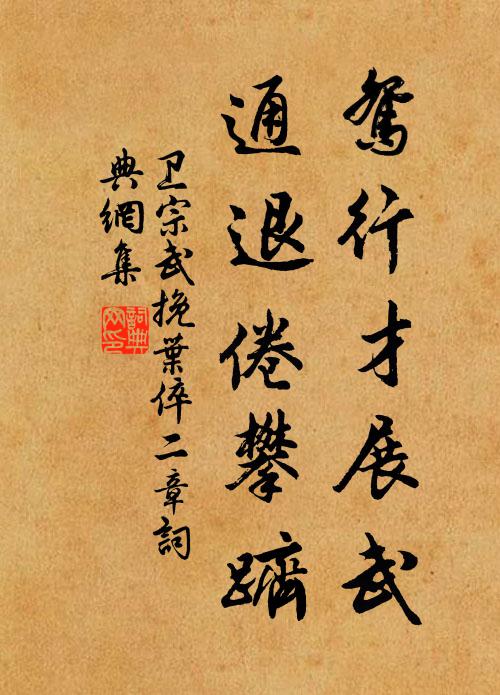 鴛行才展武
通退倦攀躋
卫宗武挽葉倅二章詞
典網集
詞典
网印